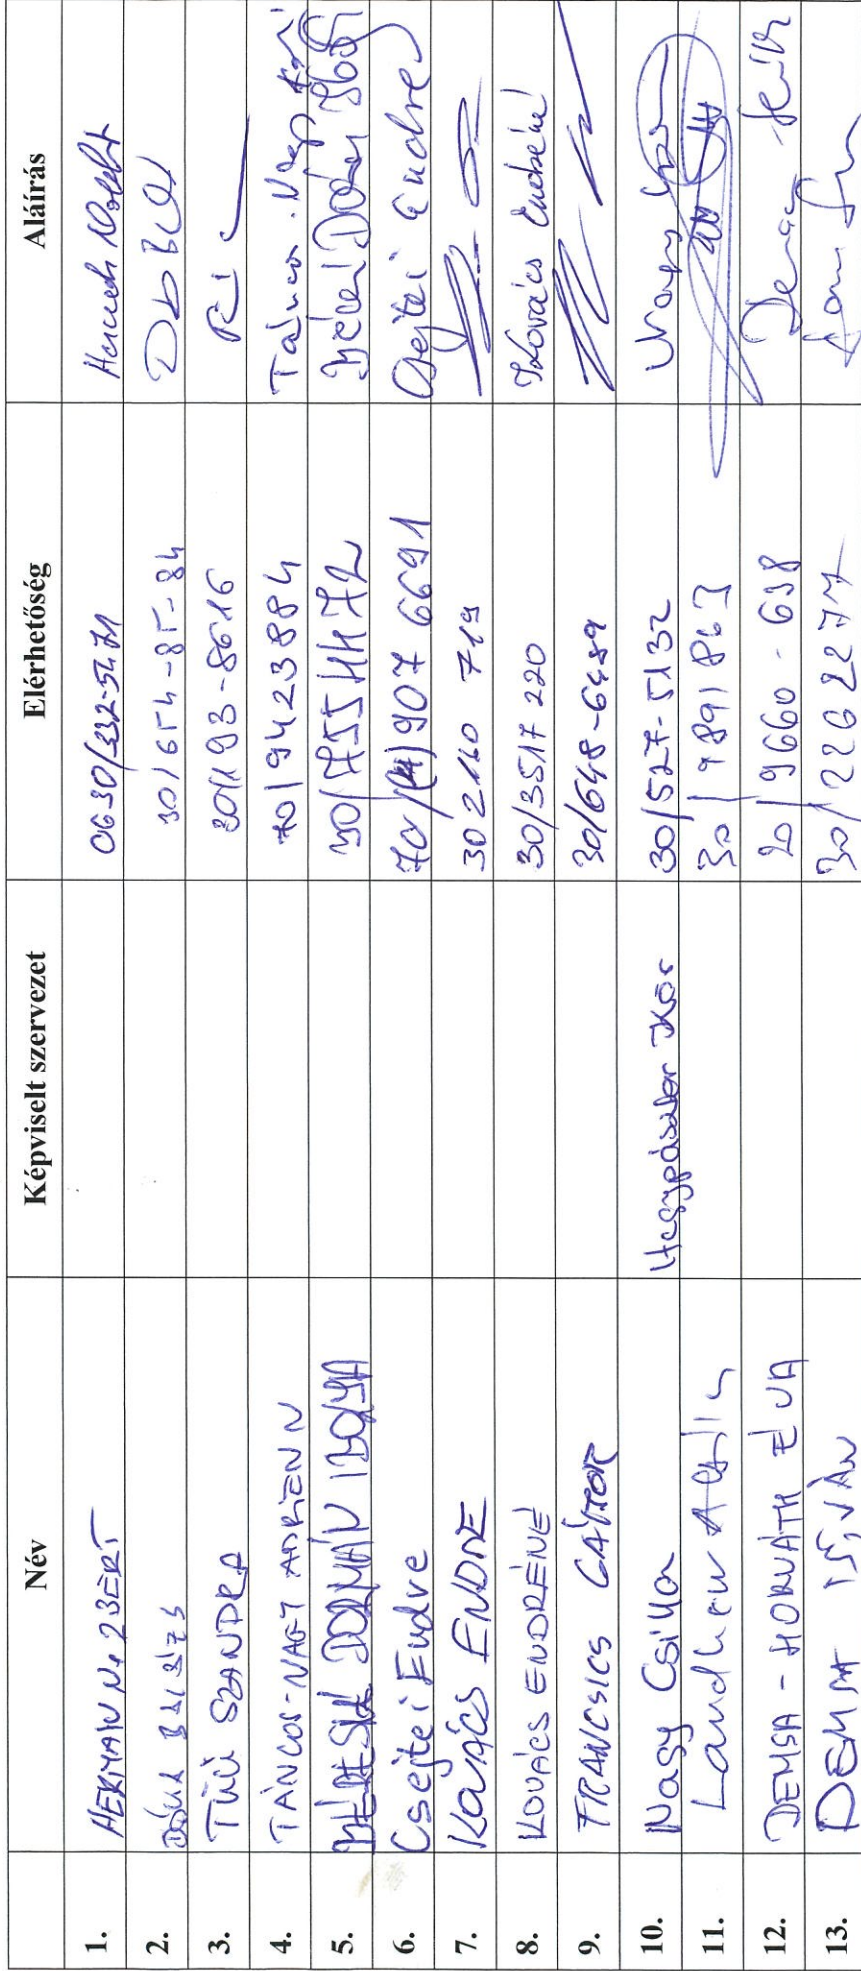 Név Képviselt szervezet Elérhetőség Aláírás
1. HERMAN NORBERT 0630/332-5471
2. BALÁZS 30/654-85-84
3. TÜCI SZANDRA 30/193-8616
4. TÁNCOS-NAGY ADRIENN 70/9423884 Táncos-Nagy
5. DORMÁN IBOLYA 30/7554472
6. Csejtei Endre 70/907 6691 Csejtei Endre
7. KOVÁCS ENDRE 302160 719
8. KOVÁCS ENDRÉNÉ 30/3517 220 Kovács Endréné
9. FRANCSICS GÁBOR 30/648-6489
10. Nagy Csilla Hegypásztor Kör 30/527-5132 Nagy
11. 30/9891863
12. DEMSA-HORVÁTH ÉVA 20/9660-638
13. ISTVÁN 30/2262277